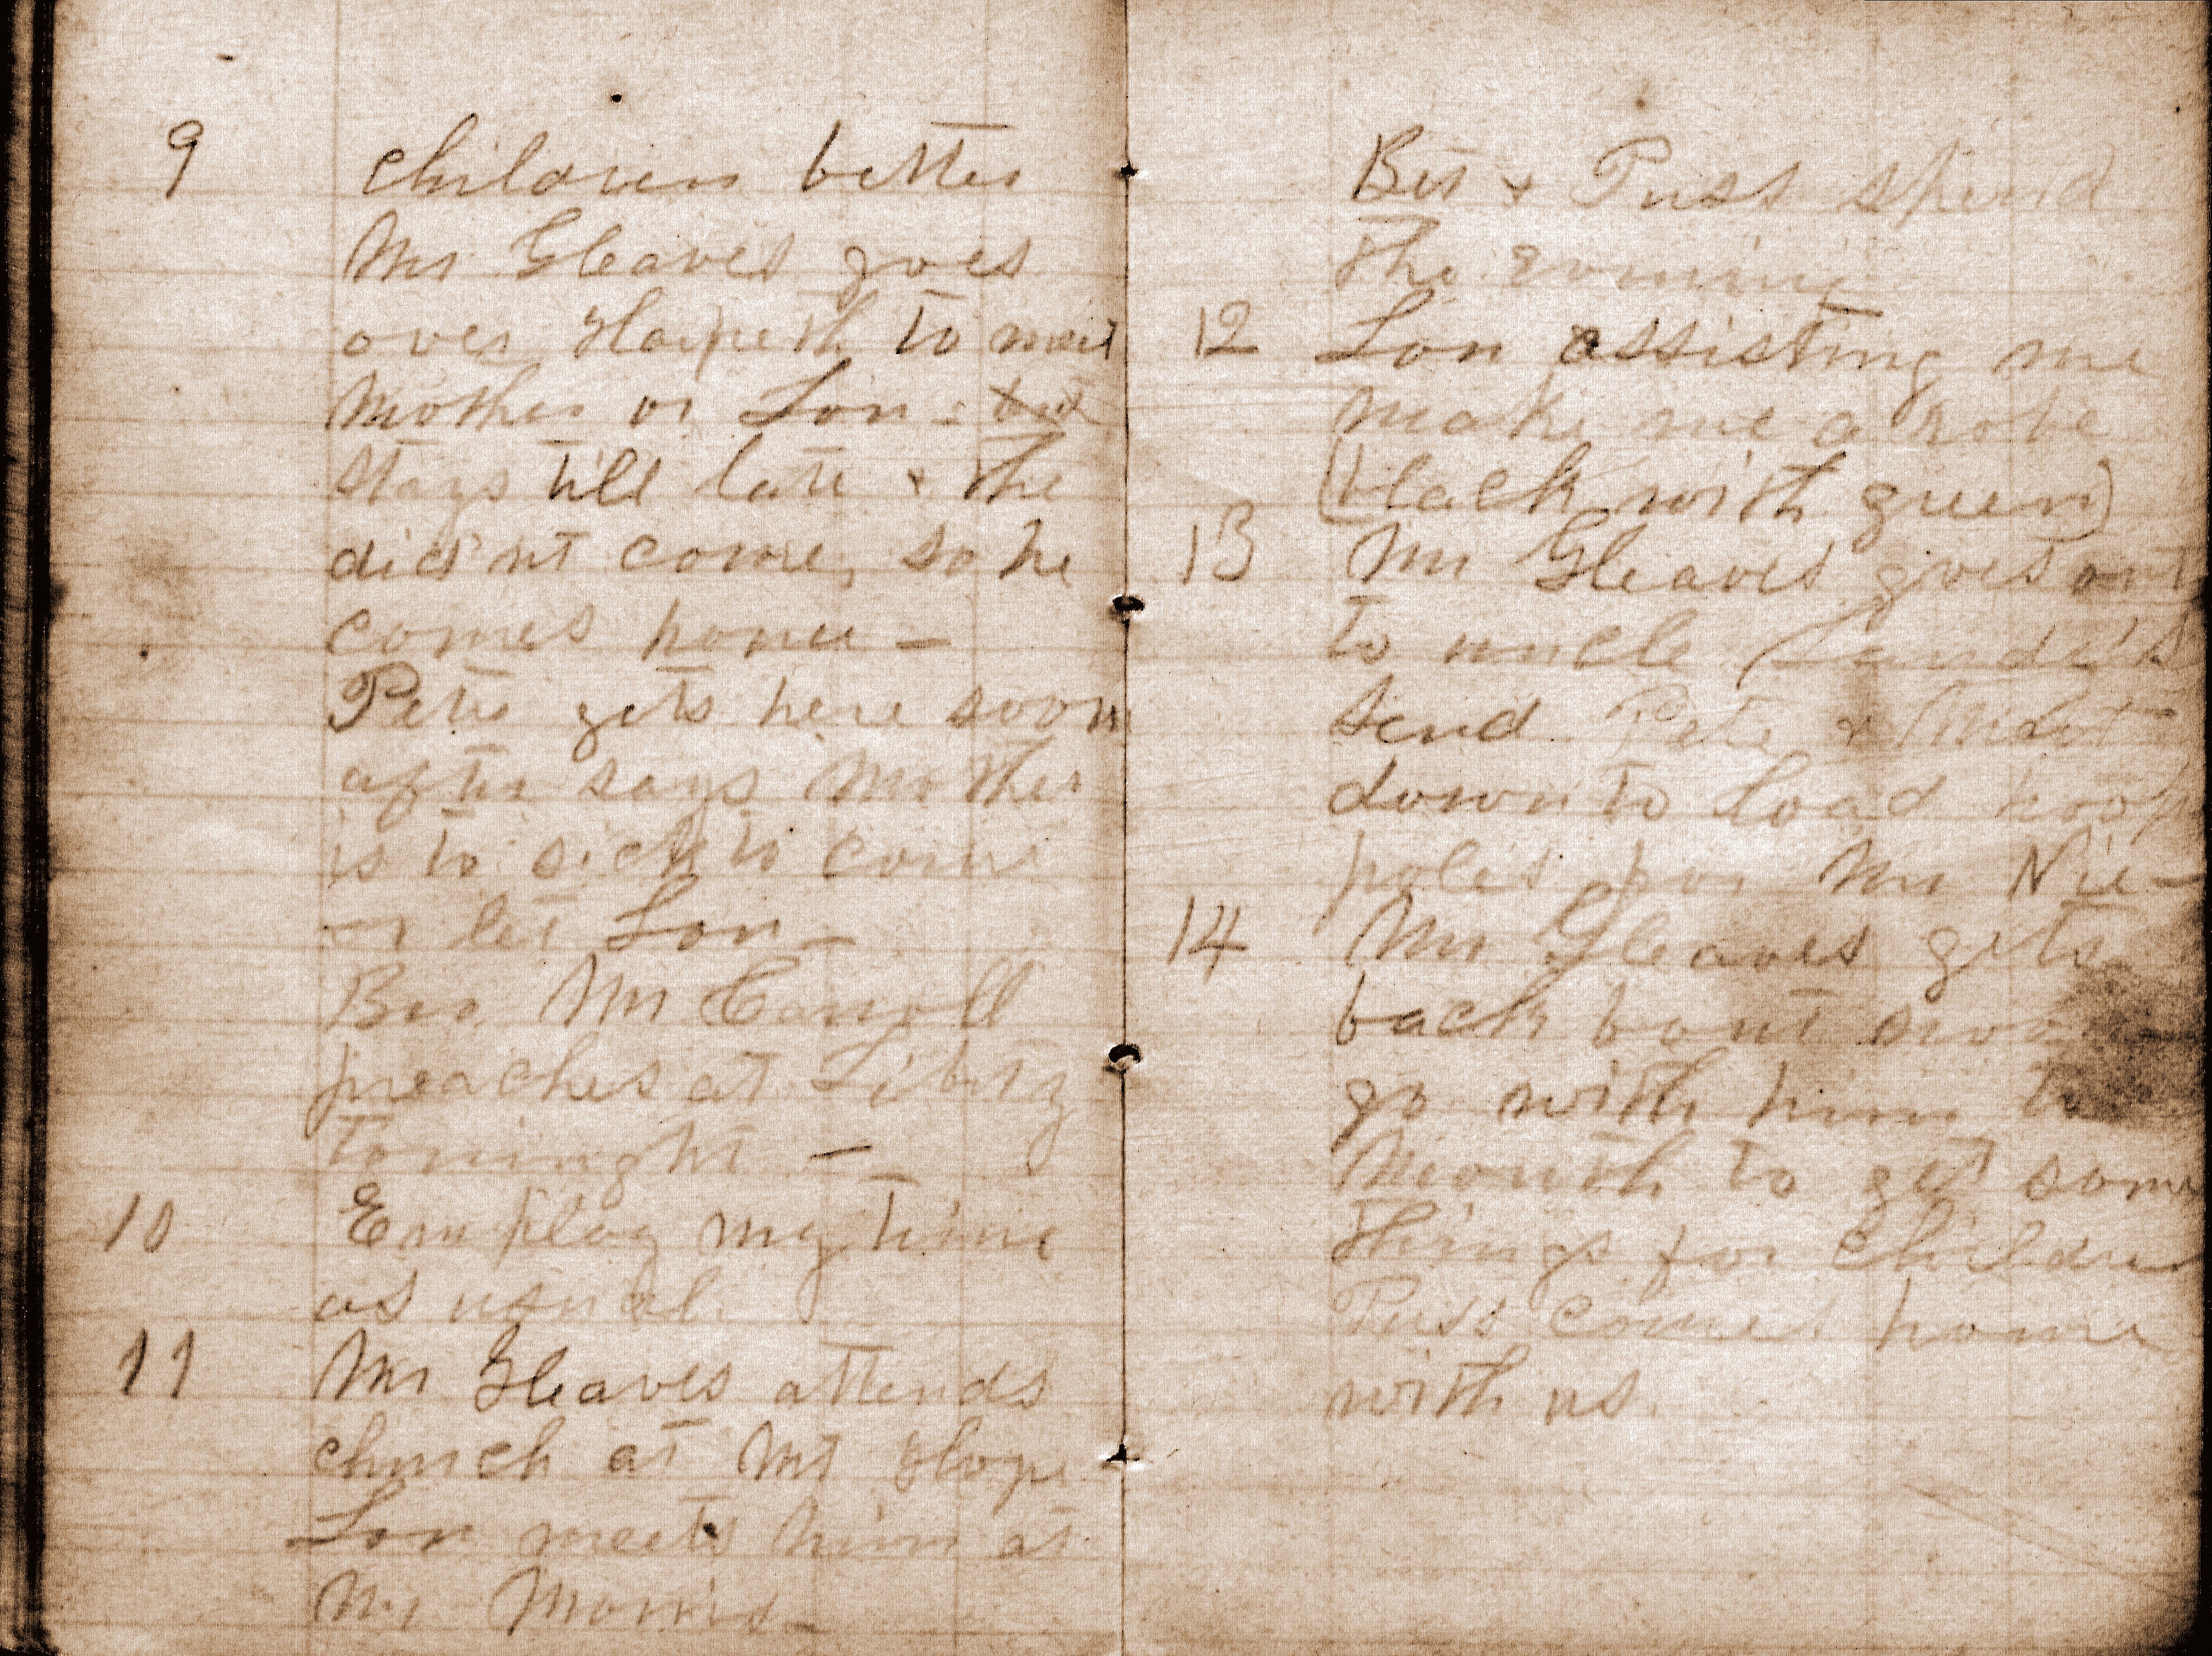 9 Children better
Mr Gleaves goes
over Harpeth to meet
Mother or Lon - but
stays till late & the
did'nt come, so he
comes home -
Pete gets here soon
after says Mother
is to sick to come
or let Lon -
Bro Mr Carroll
preaches at Liberty
toninght -
10 Employ my time
as usual.
11 Mr Gleaves attends
church at Mt Hope
Lon meets him at
Mr Morris -
Bet & Puss spend
the evening
12 Lon assisting me
make me a robe
(black with green)
13 Mr Gleaves goes out
to uncle
Send Pete &
down to load hoop
poles for Mr
14 Mr Gleaves gets
back bout noon
go with him to
Mouth to get some
things for Children
Puss comes home
with us.